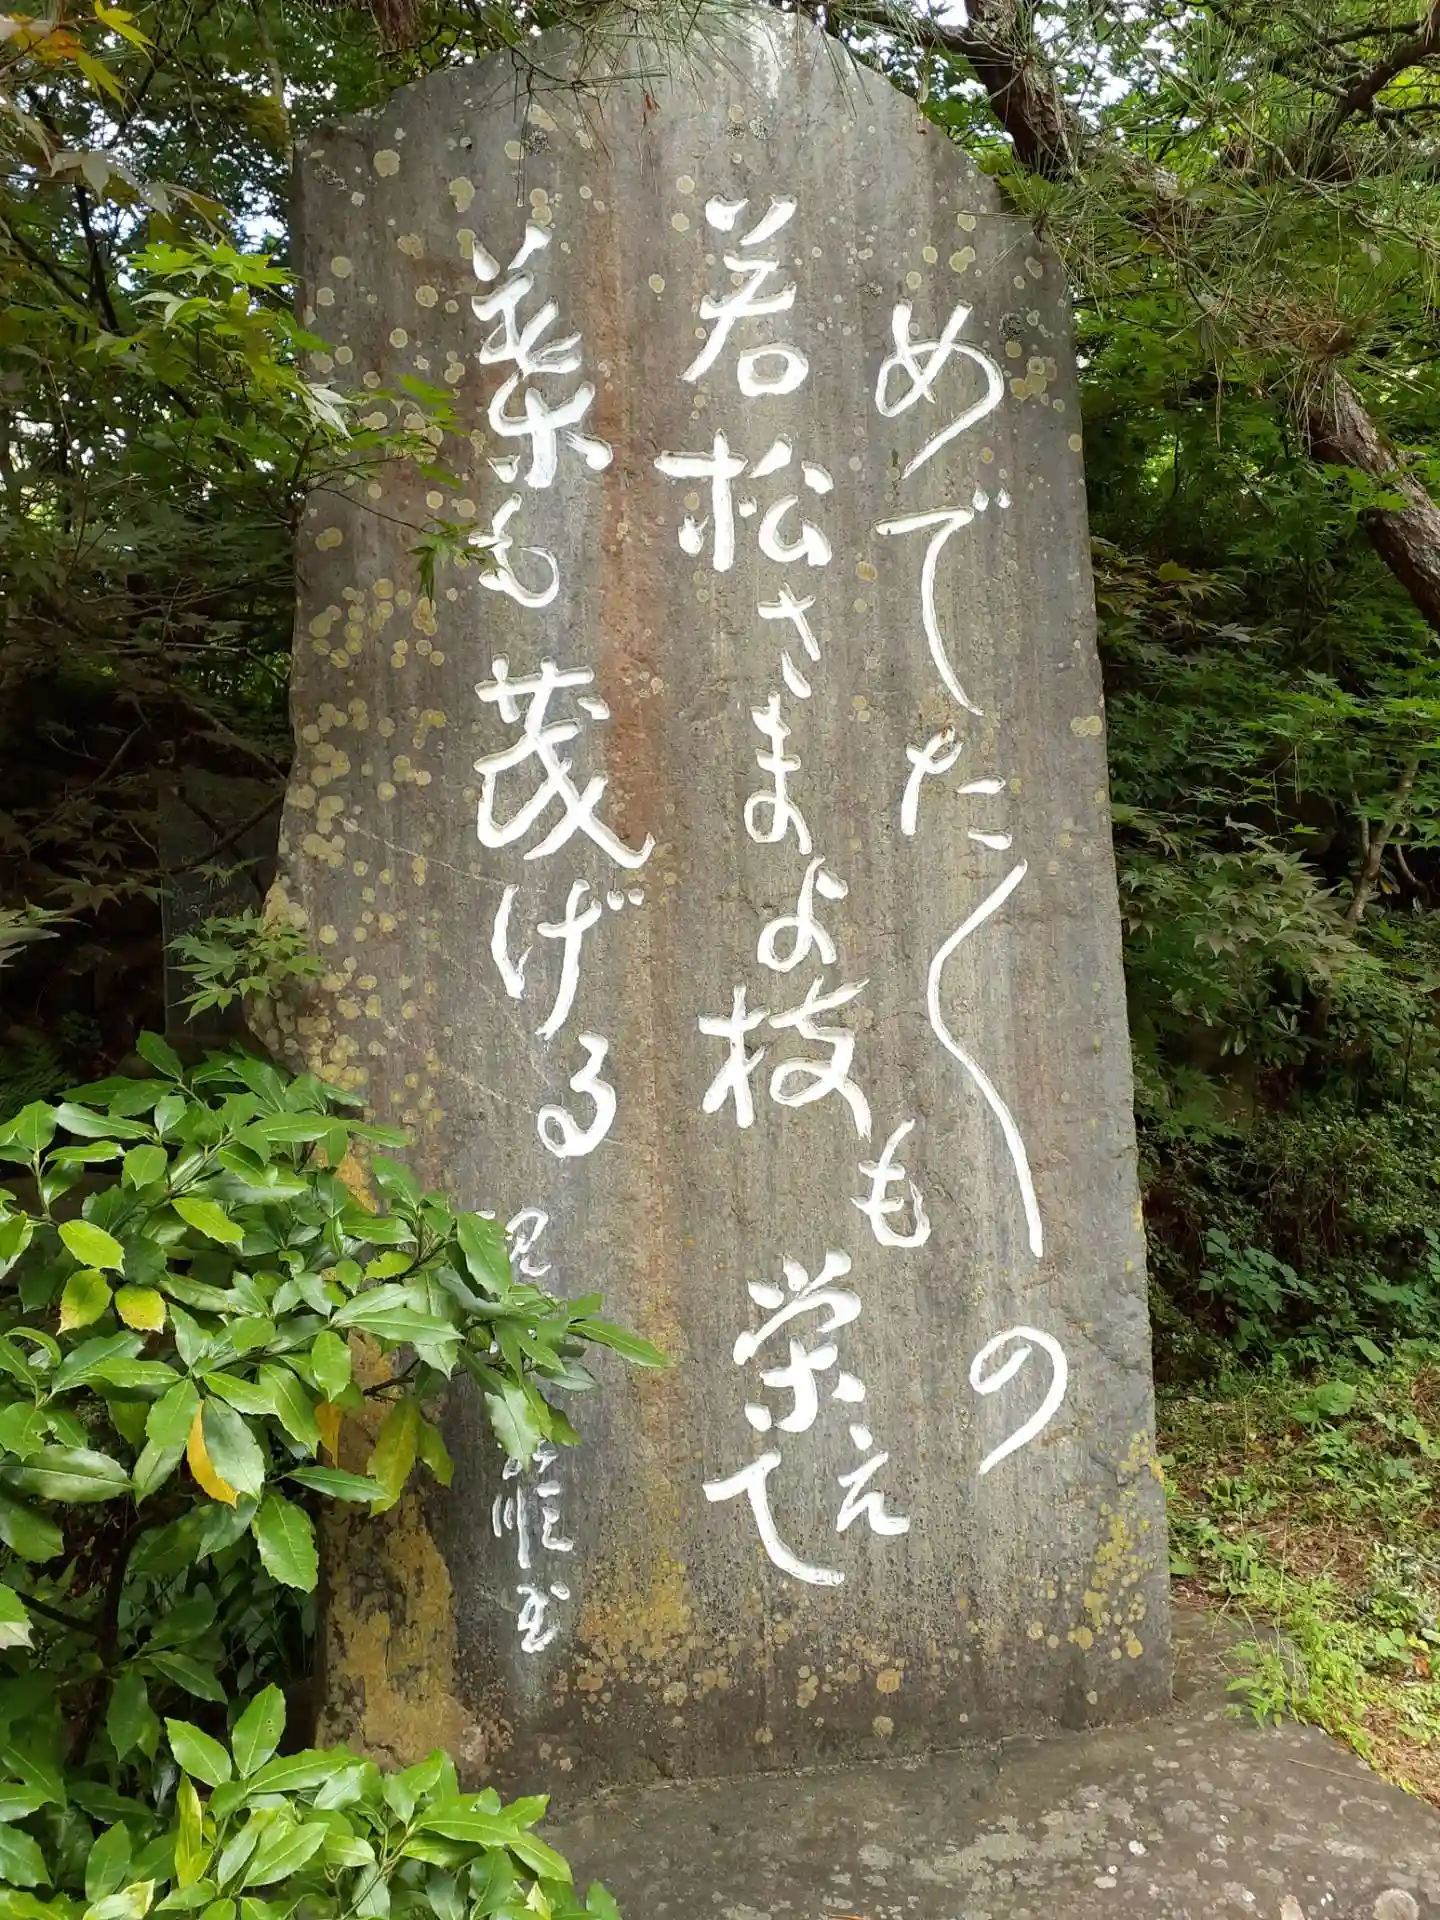 めでたくの
若松さまよ枝も栄えて
葉も茂げる